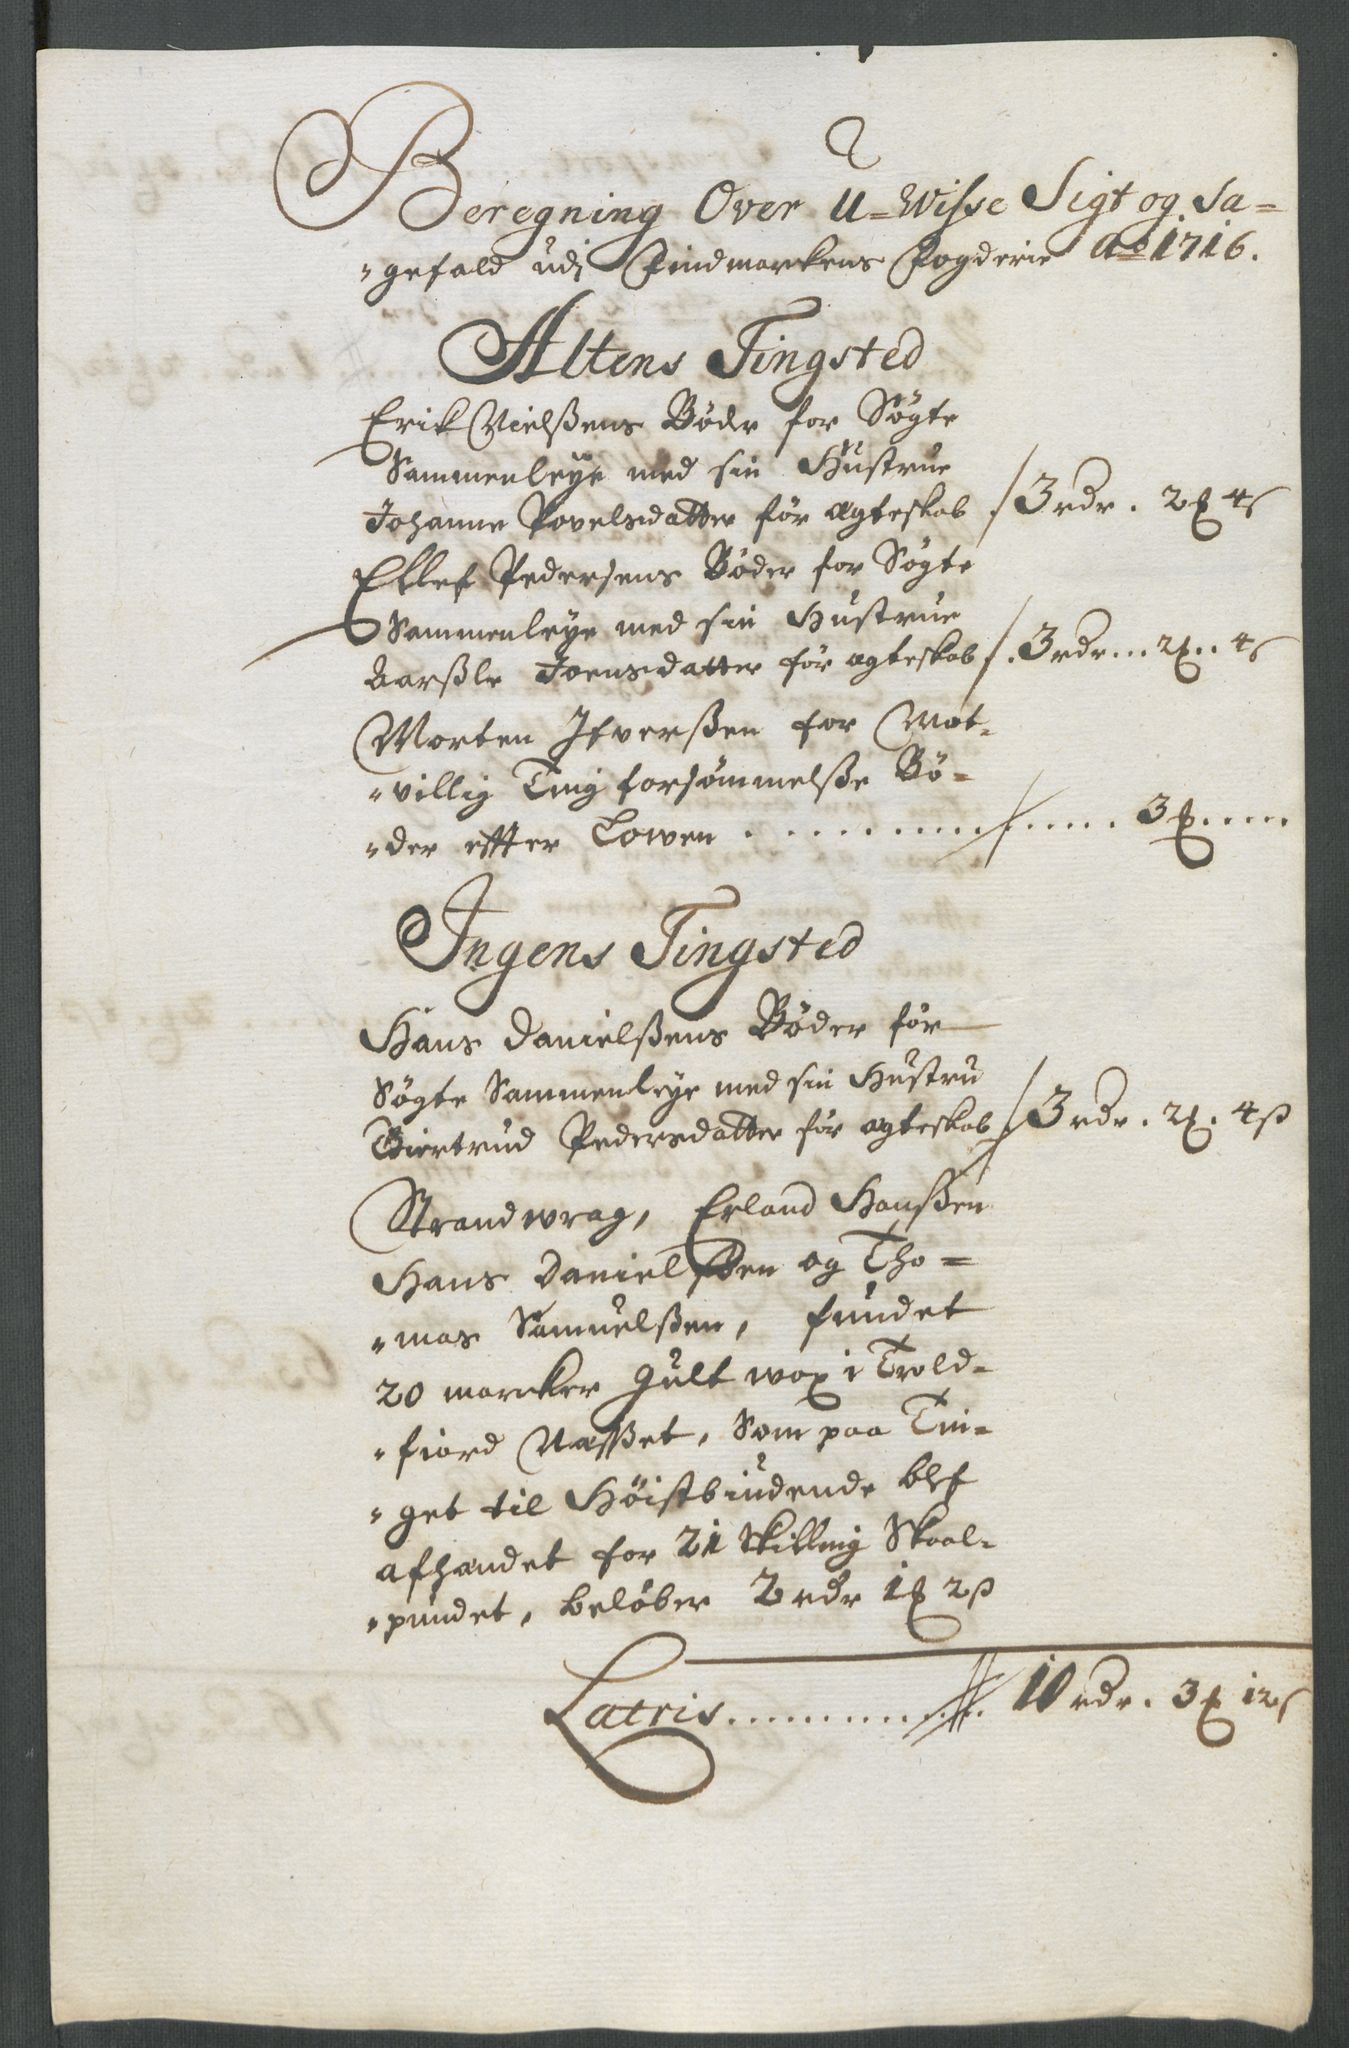 Beregning Over U=Wisse Sigt og Sa=
"gefald udj Findmarckens Fogderie Ao 1716.
Altens Tingsted
Erik Nielßens Bøder for Søgte
Sammenleye med sin Hustrue
Johanne Povelsdatter før ægteskab / 3 rdr. 2 ℳ 4 s
Ellef Pedersens Bøder for Søgte
Sammenleye med sin Hustrue
Joensdatter før ægteskab /. 3 rdr... 2 ℳ.. 4 s
Morten Ifverßen for Mot-
"villig Ting forsømmelße Bø=
"der effter Lowen . . . . . . . . . . 3 ℳ.....
Ingens Tingsted
Hans Danielßens Bøder for
Søgte Sammenleye med sin Hustru
Giertrud Pedersdatter før ægteskab / 3 rdr. 2 ℳ. 4 ß
Strandwrag, Erland Hanßen
Hans Danielßen og Tho=
"mas Samuelßen, fundet
20 marcker gult wox i Trold=
"fiord Næsset, Som paa Tin=
"get til Høistbiudende blef
afhandet for 21 skilling Skaal=
"pundet, beløber 2 rdr 1 ℳ 2 ß
Latris............ 10 rdr. 3 ℳ 12 s